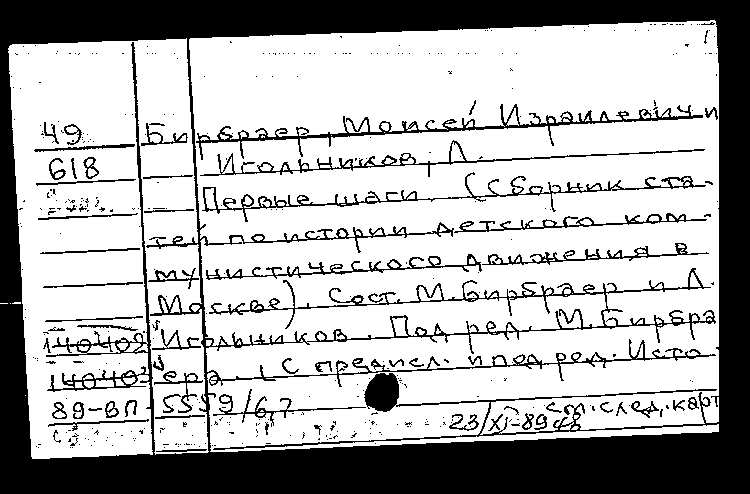 1
49 Бирбраер, Моисей Израилевич и
618 Игольников, Л.
Первые шаги. (Сборник ста-
тей по истории детского ком-
мунистического движения в
Москве). Сост. М. Бирбраер и Л.
140402 Игольников. Под ред. М. Бирбра
140403 ера. (С предисл. и под ред. Исто-
89-ВП 5559/6,7
23/XI-89 см. след. карт